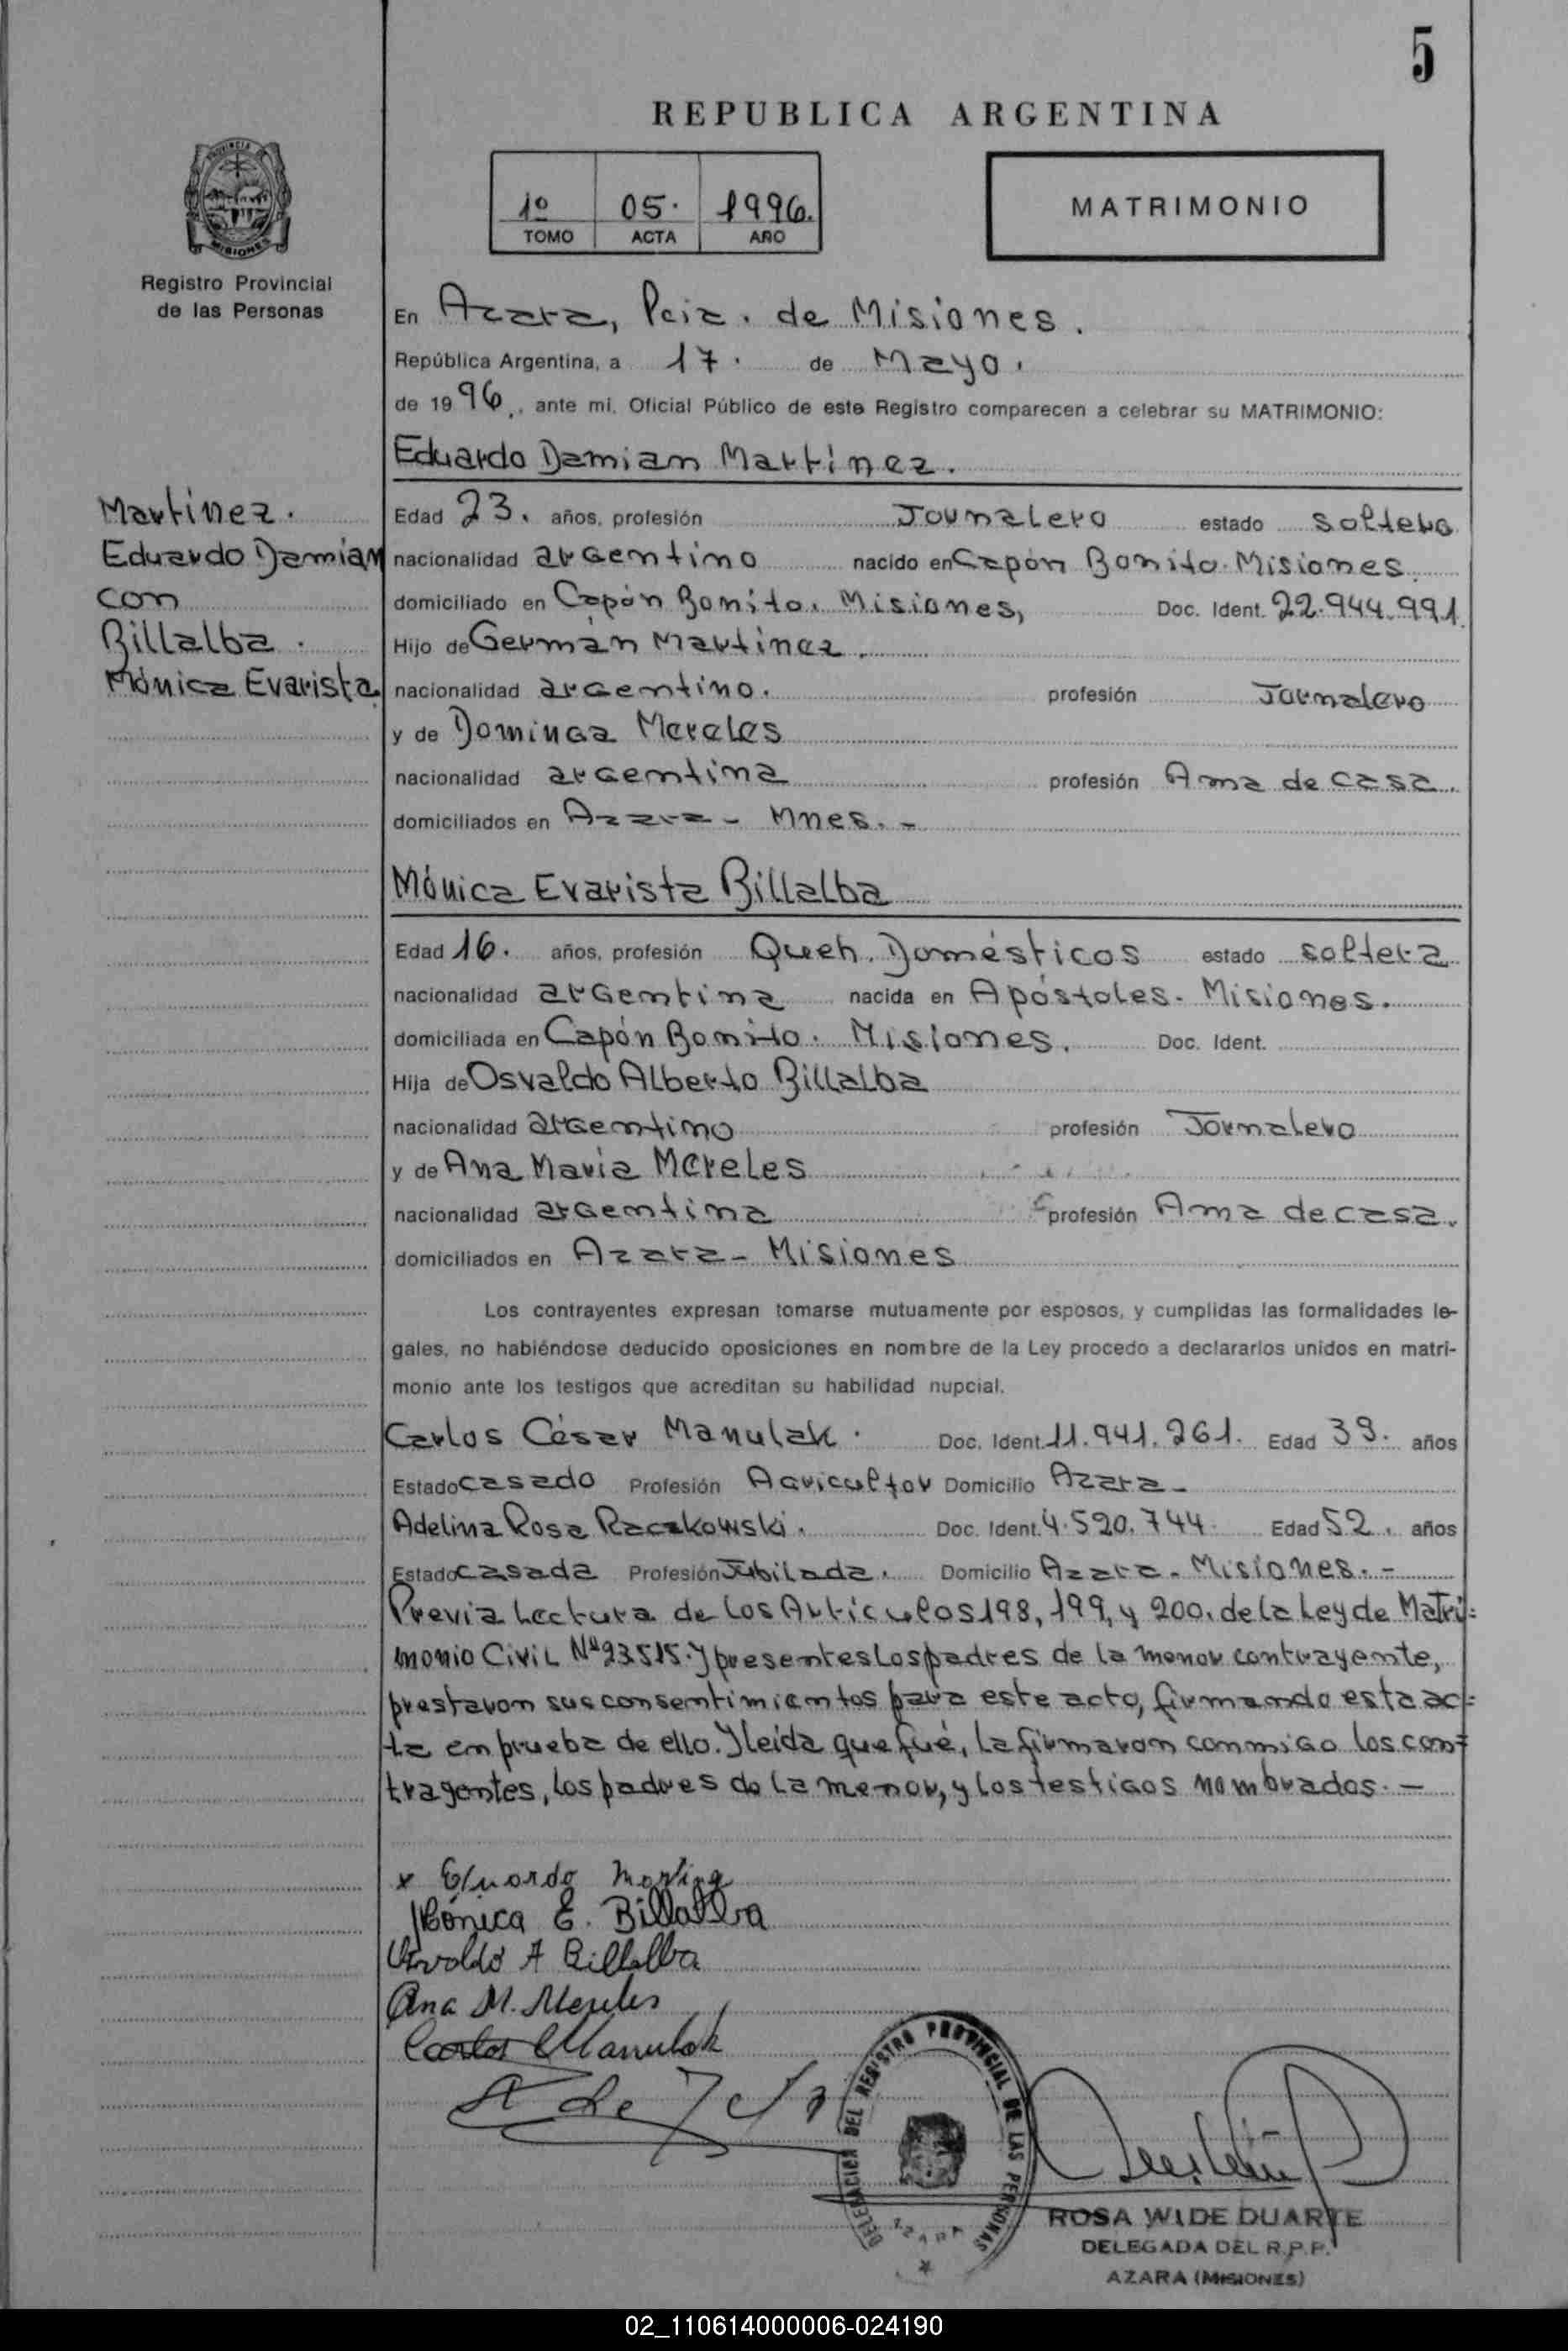 5
REPUBLICA ARGENTINA
PROVINCIA DE
MISIONES
Registro Provincial
de las Personas
1º 05. 1996.
TOMO ACTA AÑO
MATRIMONIO
En Azara, Pcia. de Misiones.
República Argentina, a 17. de Mayo.
de 1996, ante mi, Oficial Público de este Registro comparecen a celebrar su MATRIMONIO:
Eduardo Damian Martinez.
Martinez.
Eduardo Damian
con
Billalba.
Mónica Evarista
Edad 23. años, profesión Jornalero estado soltero
nacionalidad argentino nacido en Capón Bonito. Misiones.
domiciliado en Capón Bonito. Misiones, Doc. Ident. 22.944.991.
Hijo de Germán Martinez.
nacionalidad argentino. profesión Jornalero
y de Dominga Mereles
nacionalidad argentina profesión Ama de casa.
domiciliados en Azara - Mnes. -
Mónica Evarista Billalba
Edad 16. años, profesión Queh. Domésticos estado soltera
nacionalidad argentina nacida en Apóstoles. Misiones.
domiciliada en Capón Bonito. Misiones. Doc. Ident.
Hija de Osvaldo Alberto Billalba
nacionalidad argentino profesión Jornalero
y de Ana Maria Mereles
nacionalidad argentina profesión Ama de casa.
domiciliados en Azara - Misiones
Los contrayentes expresan tomarse mutuamente por esposos, y cumplidas las formalidades le-
gales, no habiéndose deducido oposiciones en nombre de la Ley procedo a declararlos unidos en matri-
monio ante los testigos que acreditan su habilidad nupcial.
Carlos César Manulak. Doc. Ident. 11.941.261. Edad 39. años
Estado casado Profesión Agricultor Domicilio Azara -
Adelina Rosa Raczkowski. Doc. Ident. 4.520.744. Edad 52. años
Estado casada Profesión Jubilada. Domicilio Azara - Misiones. -
Previa Lectura de los Articulos 198, 199, y 200. de la Ley de Matri=
monio Civil Nº 23515. y presentes los padres de la menor contrayente,
prestaron sus consentimientos para este acto, firmando esta ac=
ta en prueba de ello. y leida que fué, la firmaron conmigo los con=
trayentes, los padres de la menor, y los testigos nombrados. -
x Eduardo Martinez
Mónica E. Billalba
Osvaldo A Billalba
Ana M. Mereles
Carlos Manulak
DELEGACION DEL REGISTRO PROVINCIAL DE LAS PERSONAS
AZARA
ROSA WIDE DUARTE
DELEGADA DEL R.P.P.
AZARA (MISIONES)
02_110614000006-024190